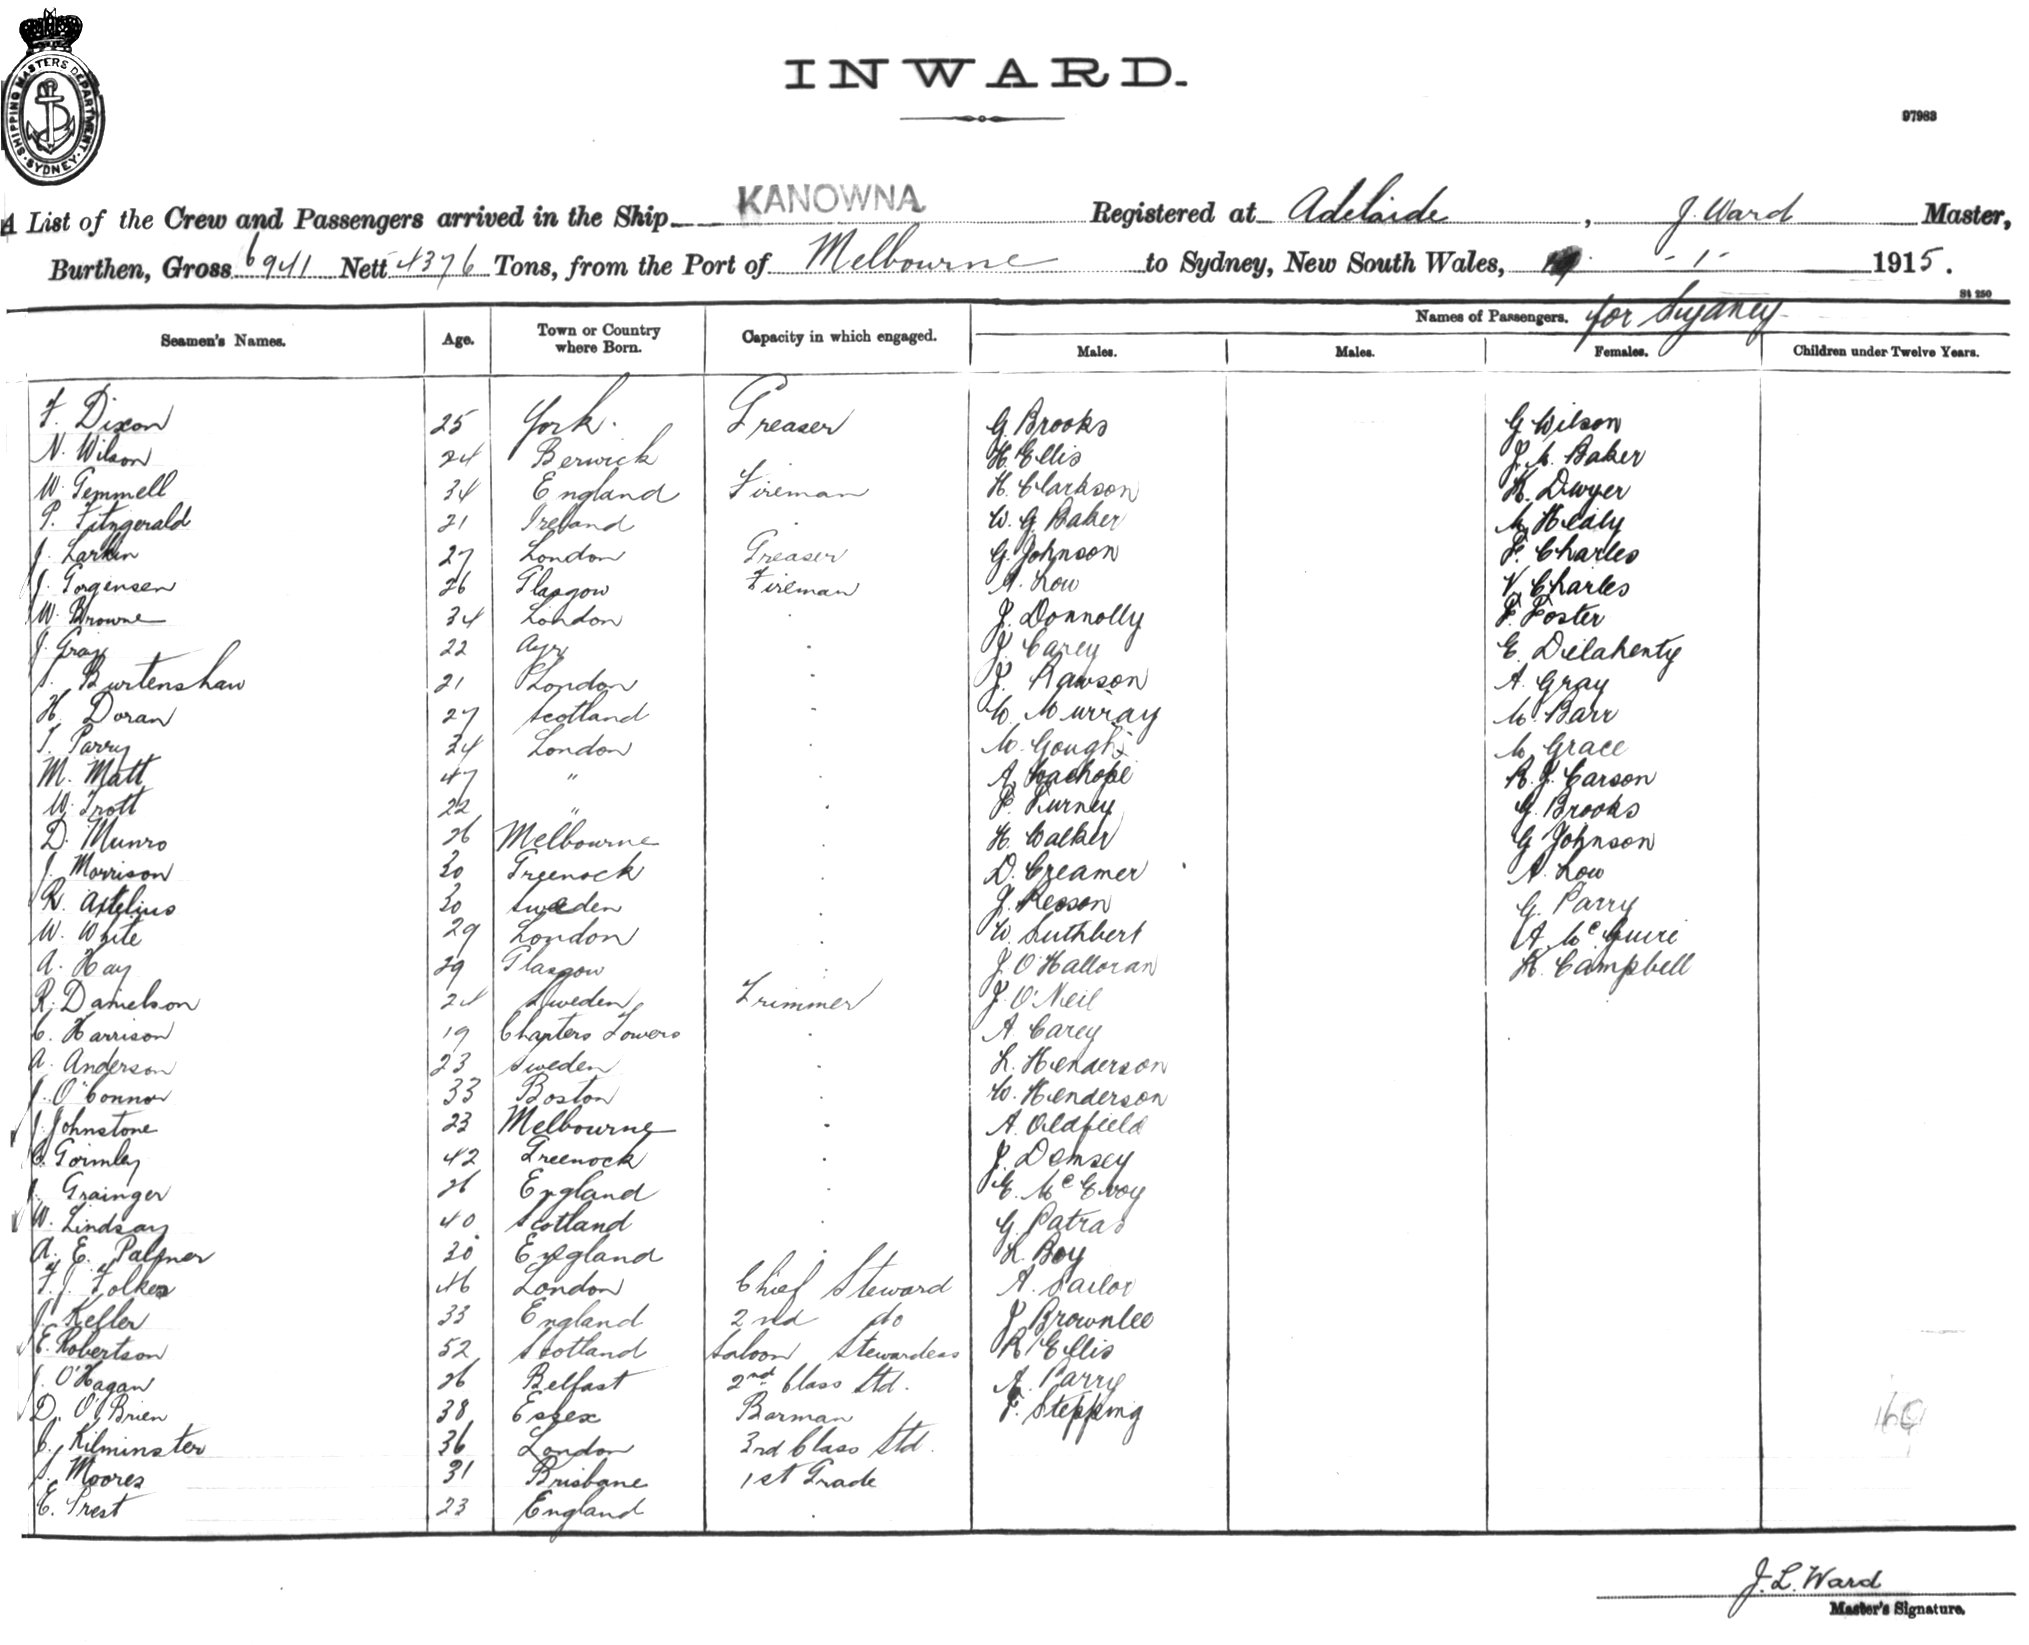 SHIPPING MASTERS DEPARTMENT. SYDNEY.
INWARD.
97983
A List of the Crew and Passengers arrived in the Ship KANOWNA Registered at Adelaide, J. Ward Master,
Burthen, Gross 6941 Nett 4376 Tons, from the Port of Melbourne to Sydney, New South Wales, -1- 1915.
St 250
Seamen's Names. Age. Town or Country where Born. Capacity in which engaged. Names of Passengers. for Sydney
Males. Males. Females. Children under Twelve Years.
F. Dixon 25 York. Greaser G. Brooks G. Wilson
N. Wilson 24 Berwick H. Ellis J. M. Baker
W. Gemmell 34 England Fireman H. Clarkson K. Dwyer
P. Fitzgerald 21 Ireland . W. G. Baker M. Healy
J. Larkin 27 London Greaser G. Johnson F. Charles
J. Jorgensen 26 Glasgow Fireman A. Low V. Charles
W. Browne 34 London . J. Donnolly F. Foster
J. Gray 22 Ayr . J. Carey E. Delahenty
Burtenshaw 21 London . J. Rawson A. Gray
H. Doran 27 Scotland . M. Murray M. Barr
T. Parry 24 London . M. Gough M. Grace
M. Matt 47 " . A. R. J. Carson
W. Trott 22 " . F. Furney G. Brooks
D. Munro 26 Melbourne . H. Walker G. Johnson
J. Morrison 30 Greenock . D. Creamer A. Low
R. Axtelius 30 Sweden . J. Reoson G. Parry
W. White 29 London . W. Suthbert A. McGuire
A. Hay 29 Glasgow . J. O'Halloran K. Campbell
R. Danielson 24 Sweden Trimmer J. O'Neil
C. Harrison 19 Charters Towers . A. Carey
A. Anderson 23 Sweden . L. Henderson
J. O'Connor 33 Boston . W. Henderson
J. Johnstone 23 Melbourne . A. Oldfield
Gormley 42 Greenock . J. Demsey
J. Grainger 26 England . E. McEvoy
W. Lindsay 40 Scotland . G. Patras
A. E. Palmer 30 England . L. Boy
F. J. Folkes 46 London Chief Steward A. Sailor
J. Keller 33 England 2nd do J. Brownlee
E. Robertson 52 Scotland Saloon Stewardess R. Ellis
J. O'Hagan 26 Belfast 2nd Class Std. A. Parry
D. O'Brien 38 Essex Barman F. Stepping
C. Kilminster 36 London 3rd Class Std.
Moores 31 Brisbane 1st Grade
E. Prest 23 England .
J. L. Ward
Master's Signature.